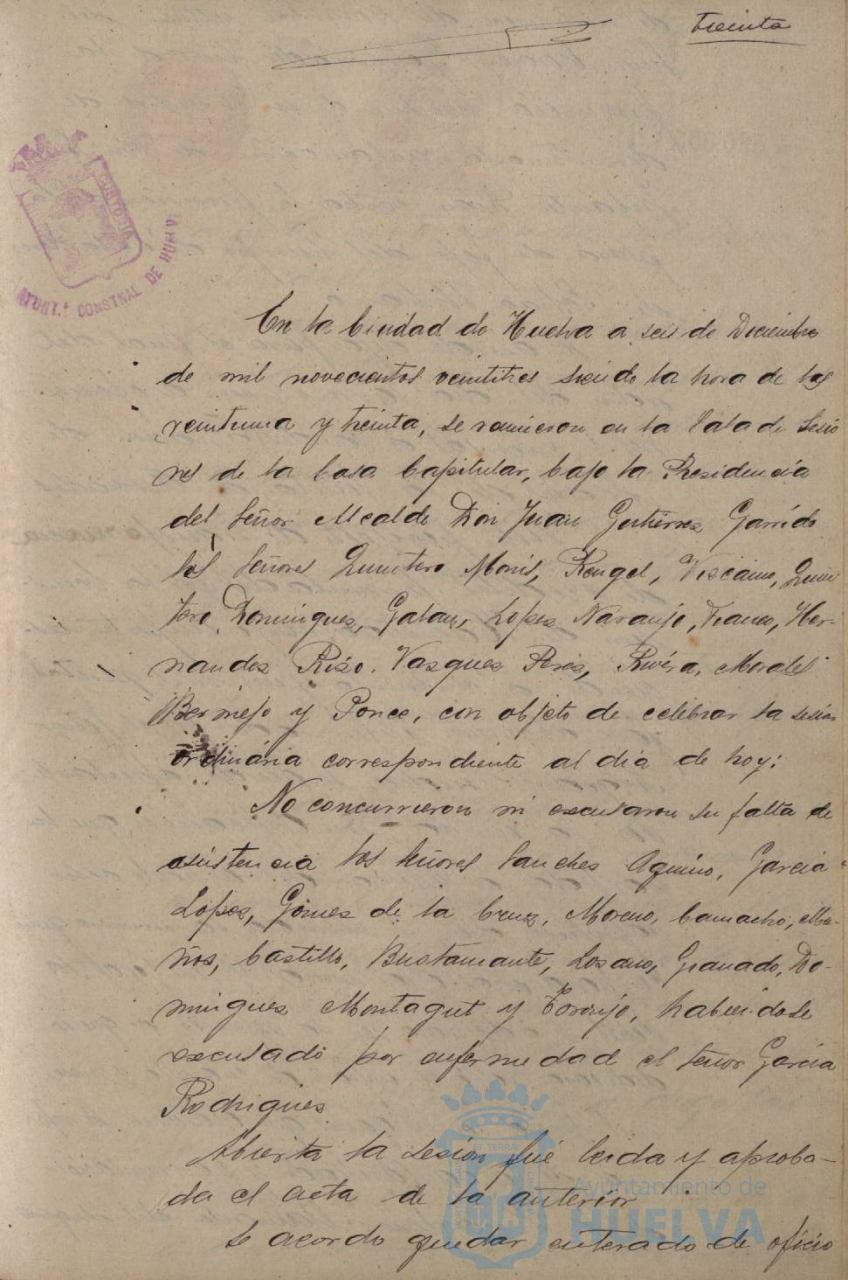 treinta
AYUNT.º CONSTNAL DE HUELVA
En la Ciudad de Huelva á seis de Diciembre
de mil novecientos veintitres siendo la hora de las
veintiuna y treinta, se reunieron en la Sala de Sesio
nes de la Casa Capitular, bajo la Presidencia
del Señor Alcalde Don Juan Gutiérrez Garrido
los Señores Quintero Monis, Rengel, Viscaino, Quin
tero Domingues, Galan, Lopes Naranjo, Franco, Her-
nandes Riso, Vasques Peres, Rivera, Morales
Bermejo y Ponce, con objeto de celebrar la sesion
ordinária correspondiente al dia de hoy:
No concurrieron ni excusaron su falta de
asistencia los señores Sanches Aquino, Garcia
Lopes, Gomes de la Cruz, Moreno, Camacho, Ma-
ños, Castillo, Bustamante, Losano, Granado, Do-
mingues Montagut y Toronjo, habiendose
excusado por enfermedad el señor García
Rodrigues
Abierta la sesion fué leida y aproba-
da el acta de la anterior
Se acordo quedar enterado de oficio
Ayuntamiento de
HUELVA